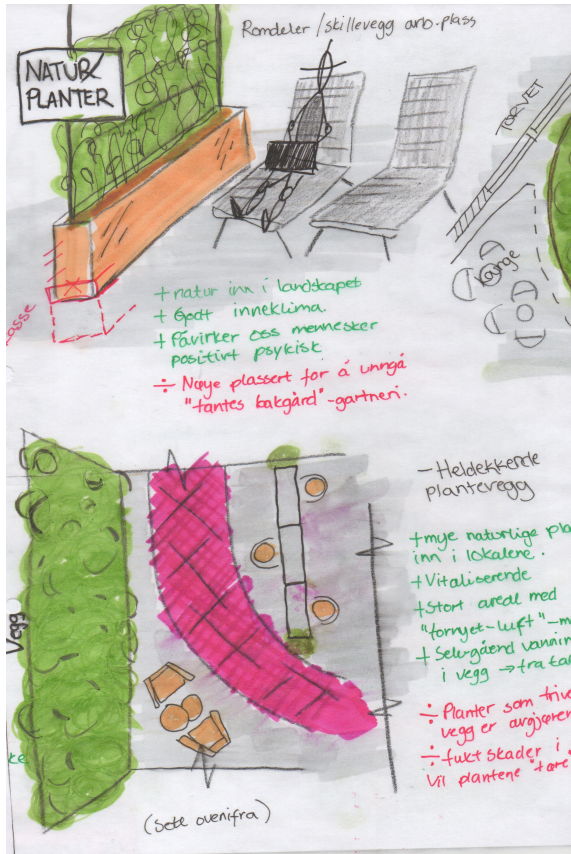 Romdeler / skillevegg arb.plass
NATUR
PLANTER
TORVET
Lounge
+ natur inn i landskapet
+ Godt inneklima.
+ Påvirker oss mennesker
positivt psykisk
÷ Nøye plassert for å unngå
"tantes bakgård"-gartneri.
- Heldekkende
plantevegg
+ mye naturlige
inn i lokalene.
+ Vitaliserende
+ Stort areal med
"fornyet-luft"
+ Selvgående
i vegg →
÷ Planter som
vegg er
÷ fukt skader i
Vil plantene
Vegg
(Sett ovenifra)